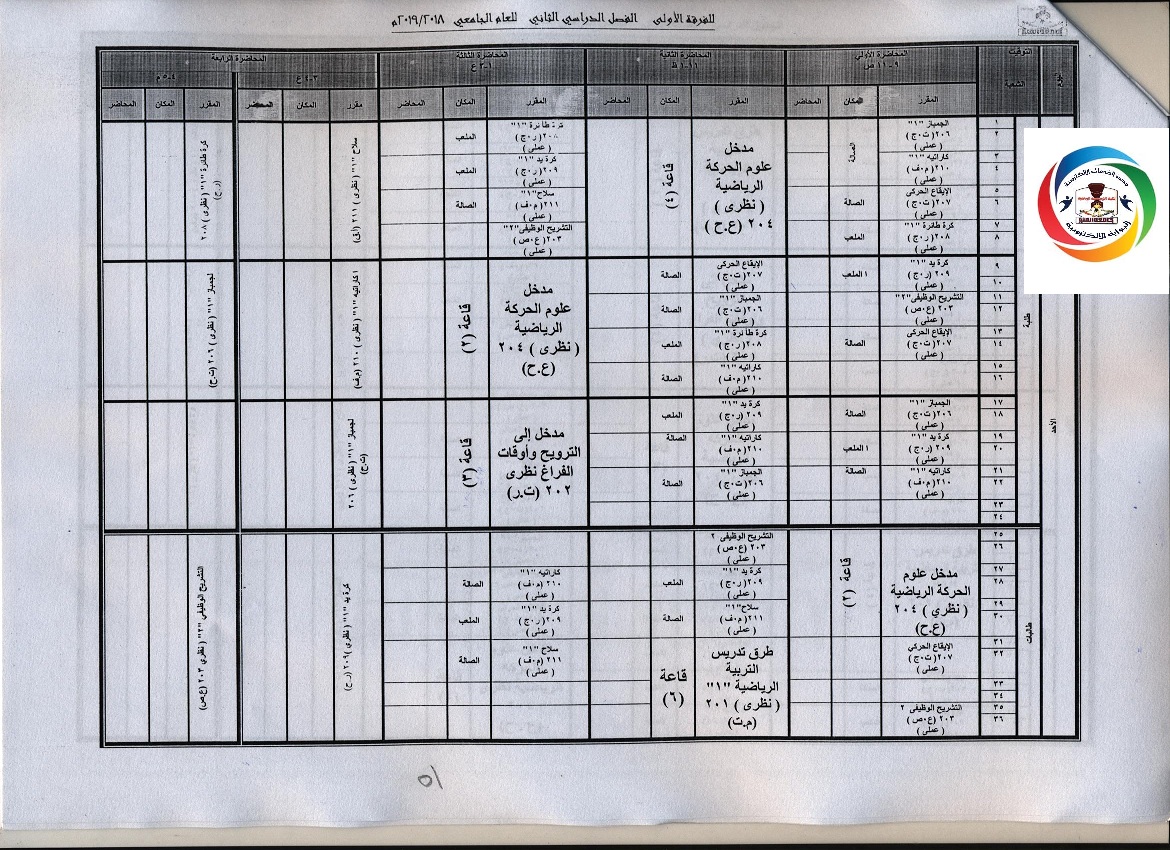 للفرقة الأولى الفصل الدراسي الثاني للعام الجامعي ٢٠١٩/٢٠١٨م
اليوم
التوقيت
الشعبة
المحاضرة الأولى
٩-١١ ص
المحاضرة الثانية
١١-١ ظ
المحاضرة الثالثة
١-٣ ع
المحاضرة الرابعة
٣-٤ ع
٤-٥ م
المقرر
المكان
المحاضر
المقرر
المكان
المحاضر
المقرر
المكان
المحاضر
مقرر
المكان
المحاضر
المقرر
المكان
المحاضر
الأحد
طلبة
١
٢
٣
٤
٥
٦
٧
٨
الجمباز "١"
٢٠٦( ت٠ج)
( عملى)
كاراتيه "١"
٢١٠( م٠ف)
( عملى)
الصالة
الإيقاع الحركى
٢٠٧( ت٠ج)
( عملى)
الصالة
كرة طائرة "١"
٢٠٨( ر٠ج)
( عملى)
الملعب
مدخل
علوم الحركة
الرياضية
( نظرى )
٢٠٤ (ع.ح)
قاعة (٤)
كرة طائرة "١"
٢٠٨( ر٠ج)
( عملى)
الملعب
كرة يد "١"
٢٠٩( ر٠ج)
( عملى)
الملعب
سلاح"١"
٢١١( م٠ف)
( عملى)
الصالة
التشريح الوظيفى"٢"
٢٠٣( ع٠ص)
( عملى)
سلاح "١" ( نظرى ) ٢١١
كرة طائرة "١" ( نظرى ) ٢٠٨
٩
١٠
١١
١٢
١٣
١٤
١٥
١٦
كرة يد "١"
٢٠٩( ر٠ج)
( عملى)
١ الملعب
التشريح الوظيفى"٢"
٢٠٣( ع٠ص)
( عملى)
الإيقاع الحركى
٢٠٧( ت٠ج)
( عملى)
الصالة
الإيقاع الحركى
٢٠٧( ت٠ج)
( عملى)
الصالة
الجمباز "١"
٢٠٦( ت٠ج)
( عملى)
الصالة
كرة طائرة "١"
٢٠٨( ر٠ج)
( عملى)
الملعب
كاراتيه "١"
٢١٠( م٠ف)
( عملى)
الصالة
مدخل
علوم الحركة
الرياضية
( نظرى ) ٢٠٤
(ع.ح)
قاعة (٢)
كاراتيه "١" ( نظرى ) ٢١٠ (م.ف)
لجمباز "١" ( نظرى ) ٢٠٦ (ت.ج)
١٧
١٨
١٩
٢٠
٢١
٢٢
٢٣
٢٤
الجمباز "١"
٢٠٦( ت٠ج)
( عملى)
الصالة
كرة يد "١"
٢٠٩( ر٠ج)
( عملى)
١ الملعب
كاراتيه "١"
٢١٠( م٠ف)
( عملى)
الصالة
كرة يد "١"
٢٠٩( ر٠ج)
( عملى)
الملعب
كاراتيه "١"
٢١٠( م٠ف)
( عملى)
الصالة
الجمباز "١"
٢٠٦( ت٠ج)
( عملى)
الصالة
مدخل إلى
الترويح وأوقات
الفراغ نظرى
٢٠٢ (ت.ر)
قاعة (٣)
لجمباز "١" ( نظرى ) ٢٠٦
(ت.ج)
طالبات
٢٥
٢٦
٢٧
٢٨
٢٩
٣٠
٣١
٣٢
٣٣
٣٤
٣٥
٣٦
مدخل علوم
الحركة الرياضية
( نظري ) ٢٠٤
(ع.ح)
قاعة (٢)
الإيقاع الحركي
٢٠٧( ت٠ج)
( عملى)
الصالة
التشريح الوظيفى ٢
٢٠٣( ع٠ص)
( عملى)
التشريح الوظيفى ٢
٢٠٣( ع٠ص)
( عملى)
كرة يد "١"
٢٠٩( ر٠ج)
( عملى)
الملعب
سلاح"١"
٢١١( م٠ف)
( عملى)
الصالة
طرق تدريس
التربية
الرياضية "١"
( نظرى ) ٢٠١
(م.ت)
قاعة
(٦)
كاراتيه "١"
٢١٠( م٠ف)
( عملى)
الصالة
كرة يد "١"
٢٠٩( ر٠ج)
( عملى)
الملعب
سلاح "١"
٢١١( م٠ف)
( عملى)
الصالة
كرة يد "١" ( نظرى )٢٠٩ (ر.ج)
التشريح الوظيفي "٢" ( نظري ٢٠٣ (ع.ص)
البوابة الالكترونية